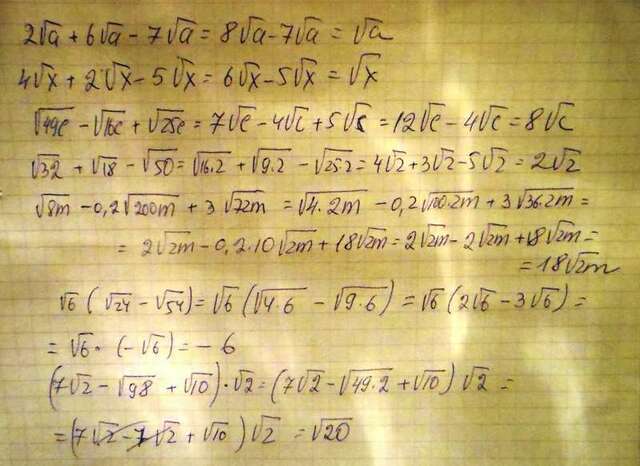 2√a + 6√a - 7√a = 8√a - 7√a = √a
4√x + 2√x - 5√x = 6√x - 5√x = √x
√49c - √16c + √25c = 7√c - 4√c + 5√c = 12√c - 4√c = 8√c
√32 + √18 - √50 = √16·2 + √9·2 - √25·2 = 4√2 + 3√2 - 5√2 = 2√2
√8m - 0,2√200m + 3√72m = √4·2m - 0,2√100·2m + 3√36·2m =
= 2√2m - 0,2·10√2m + 18√2m = 2√2m - 2√2m + 18√2m =
= 18√2m
√6 (√24 - √54) = √6 (√4·6 - √9·6) = √6 (2√6 - 3√6) =
= √6 · (-√6) = - 6
(7√2 - √98 + √10) · √2 = (7√2 - √49·2 + √10) √2 =
= (7√2 - 7√2 + √10) √2 = √20